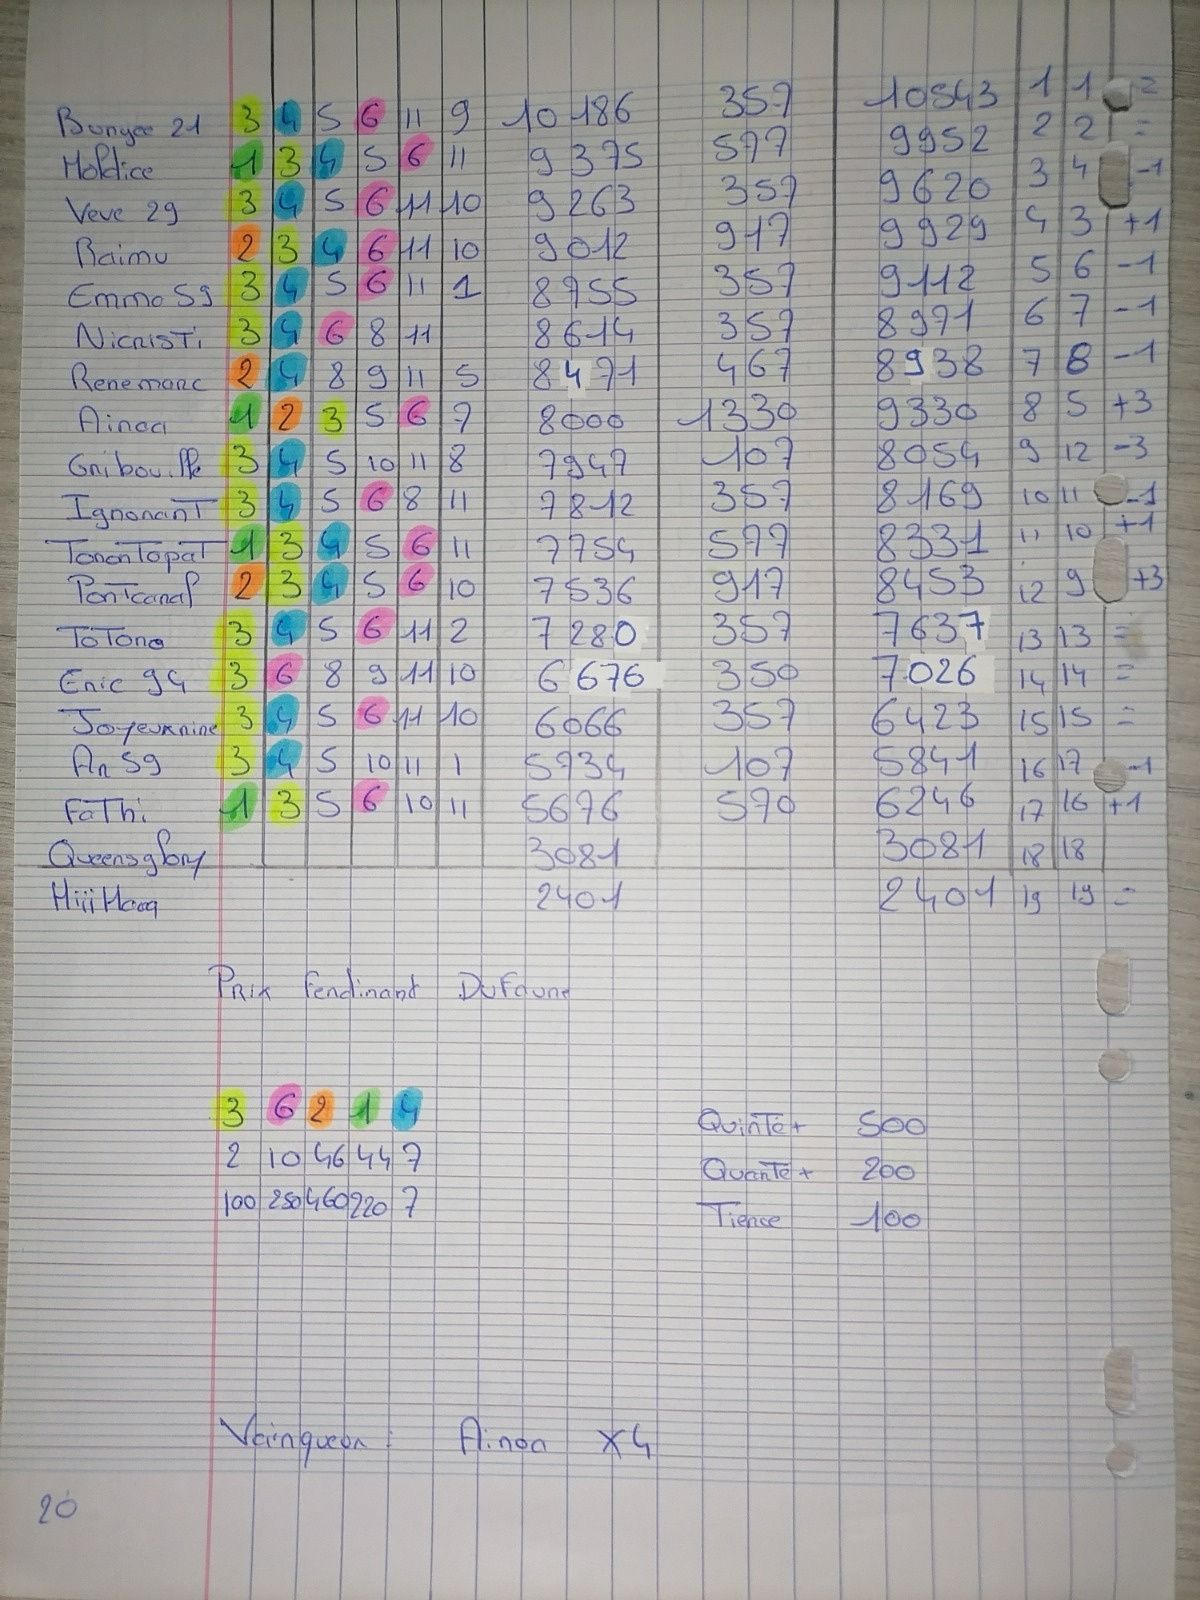 Bungee 21 3 4 5 6 11 9 10 186 357 10543 1 1 =
Holdice 1 3 4 5 6 11 9 375 577 9952 2 2 =
Veve 29 3 4 5 6 11 10 9 263 357 9 620 3 4 -1
Raimu 2 3 4 6 11 10 9 012 917 9 929 4 3 +1
Emma 59 3 4 5 6 11 1 8 755 357 9112 5 6 -1
Nicristi 3 4 6 8 11 8 614 357 8 971 6 7 -1
Renemarc 2 4 8 9 11 5 8 471 467 8938 7 8 -1
Ainoa 1 2 3 5 6 7 8000 1330 9330 8 5 +3
Gribouille 3 4 5 10 11 8 7947 107 8054 9 12 -3
Ignorant 3 4 5 6 8 11 7812 357 8169 10 11 -1
Tonontopat 1 3 4 5 6 11 7754 577 8331 11 10 +1
Pontcanaf 2 3 4 5 6 10 7536 917 8453 12 9 +3
ToTona 3 4 5 6 11 2 7 280 357 7637 13 13 =
Eric 94 3 6 8 9 11 10 6 676 350 7026 14 14 =
Joyeuxnine 3 4 5 6 11 10 6066 357 6423 15 15 =
An 59 3 4 5 10 11 1 5734 107 5841 16 17 -1
FaThi 1 3 5 6 10 11 5676 570 6246 17 16 +1
Queensglory 3081 3081 18 18
HiiiHaaa 2401 2401 19 19 =
Prix Ferdinant Dufaure
3 6 2 1 4
Quinté+ 500
2 10 46 44 7
Quarté+ 200
100 250 460 220 7
Tierce 100
Vainqueur : Ainoa X4
20